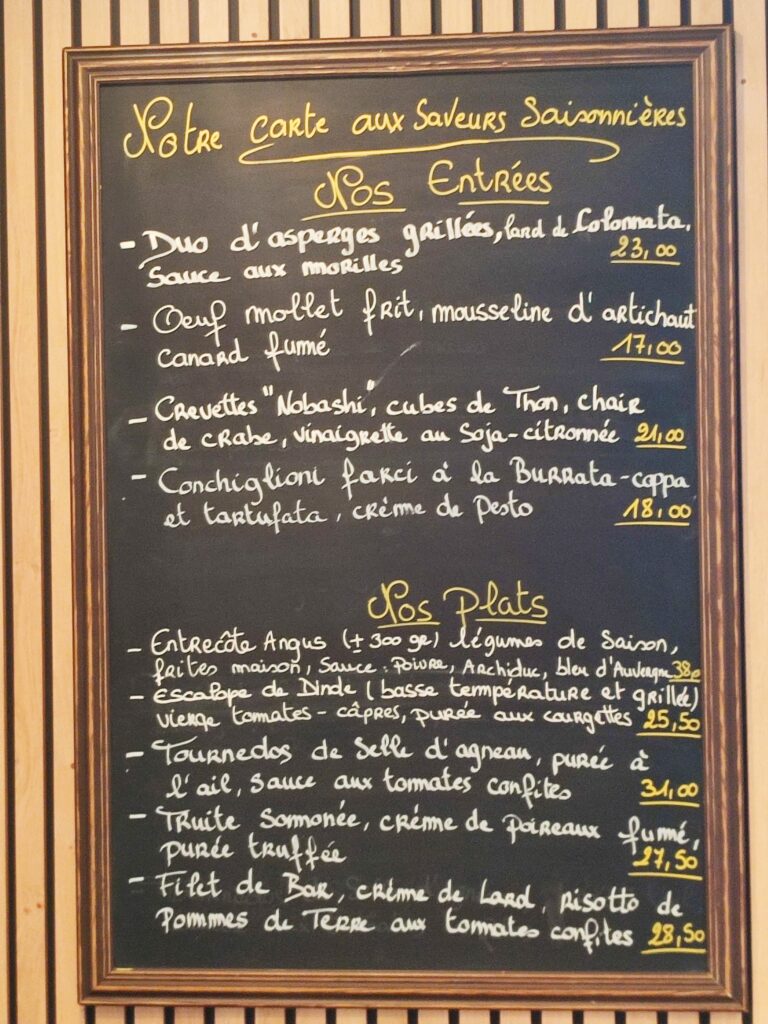 Notre carte aux Saveurs Saisonnières
Nos Entrées
- Duo d'asperges grillées, lard de Colonnata,
Sauce aux morilles 23,00
- Oeuf mollet frit, mousseline d'artichaut
canard fumé 17,00
- Crevettes "Nobashi", cubes de Thon, chair
de crabe, vinaigrette au Soja-citronnée 21,00
- Conchiglioni farci à la Burrata-coppa
et tartufata, crème de Pesto 18,00
Nos plats
- Entrecôte Angus (± 300 gr) légumes de Saison,
frites maison, Sauce: Poivre, Archiduc, bleu d'Auvergne
- Escalope de Dinde (basse température et grillée)
vierge tomates - câpres, purée aux courgettes 25,50
- Tournedos de Selle d'agneau, purée à
l'ail, Sauce aux tomates confites 31,00
- Truite Somonée, crème de Poireaux fumé,
purée truffée 27,50
- Filet de Bar, crème de Lard, risotto de
Pommes de Terre aux tomates confites 28,50